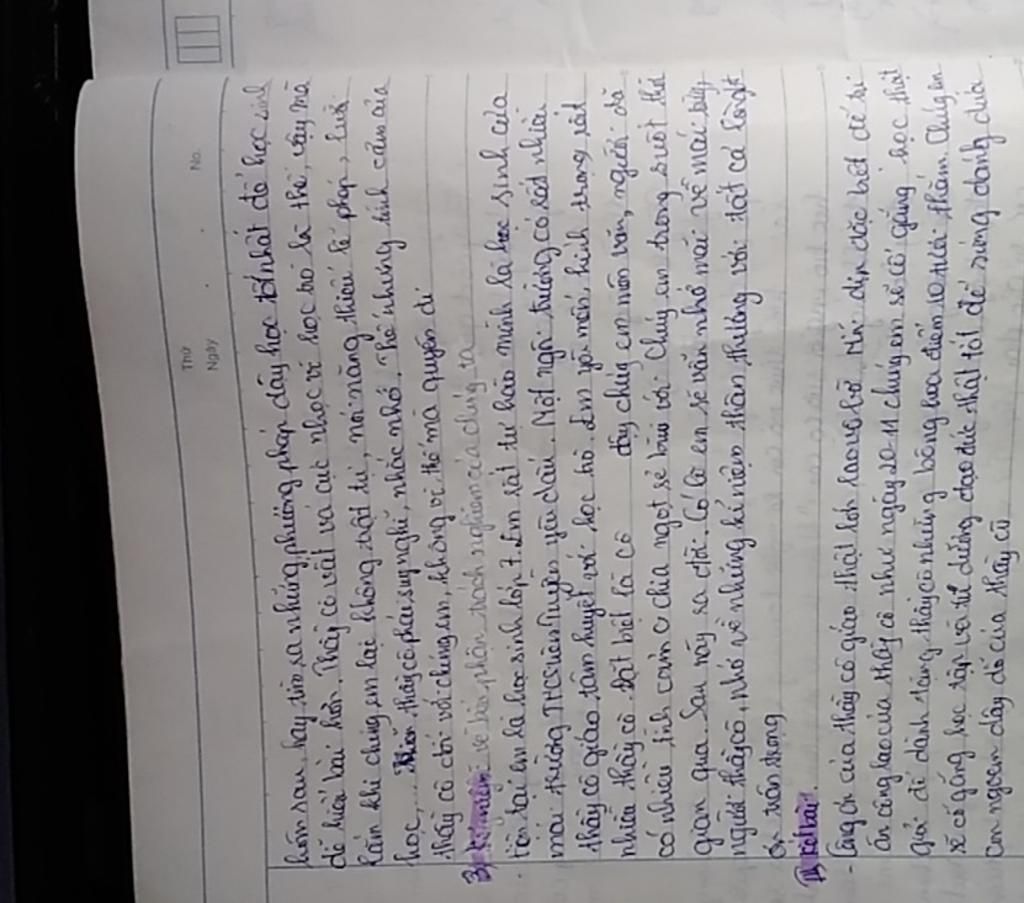 No.
Thứ
Ngày
hôm sau, hay tìm ra những phương pháp dạy học tốt nhất để học sinh
dễ hiểu bài hơn. Thầy cô vất vả cực nhọc vì học trò là thế, vậy mà
lắm khi chúng em lại không trật tự, nói năng thiếu lễ phép, lười
học,... khiến thầy cô phải suy nghĩ, nhắc nhở. Thế nhưng tình cảm của
thầy cô đối với chúng em, không vì thế mà quyên đi
3, về bổn phận, trách nghiệm của chúng ta
- tồn tại em là học sinh lớp 7. Em rất tự hào mình là học sinh của
mái trường THCS yêu dấu. Một ngôi trường có rất nhiều
thầy cô giáo tâm huyết với học trò. Em yêu mến, kính trọng rất
nhiều thầy cô đặt biệt là cô dạy chúng em môn văn, người đã
có nhiều tình cảm chia ngọt sẻ bùi với chúng em trong suốt thời
gian qua. Sau này ra đời. Có lẽ em sẽ vẫn nhớ mãi về mái trường,
người thầy cô, nhớ về những kỉ niệm thân thương với tất cả lòng biết
ơn trân trọng
III, Kết bài:
- Công ơn của thầy cô giáo thật lớn lao và bờ. Nên dịp đặc biệt để tri
ân công lao của thầy cô như ngày 20-11 chúng em sẽ cố gắng học thật
giỏi để dành tặng thầy cô những bông hoa điểm 10 tươi thắm. Chúng em
sẽ cố gắng học tập và tu dưỡng đạo đức thật tốt để xứng đáng
con ngoan dạy dỗ của thầy cô